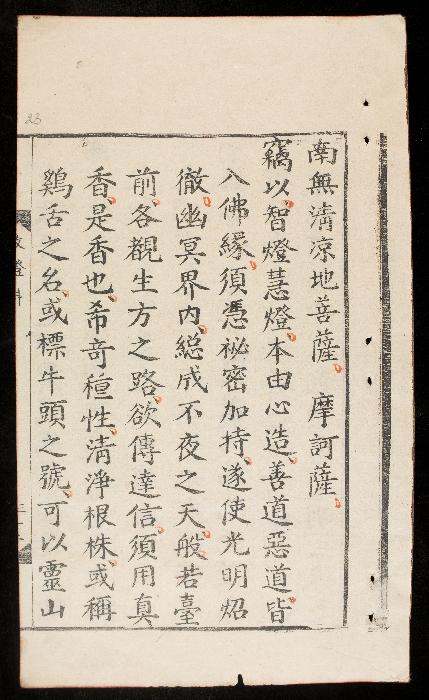 南無清凉地菩薩 摩訶薩
竊以智燈慧燈本由心造善道惡道皆
入佛緣須憑祕密加持遂使光明炤
徹幽冥界内総成不夜之天般若臺
前各覩生方之路欲傳達信須用真
香是香也希竒種性清淨根株或稱
鷄舌之名或標牛頭之號可以靈山
23